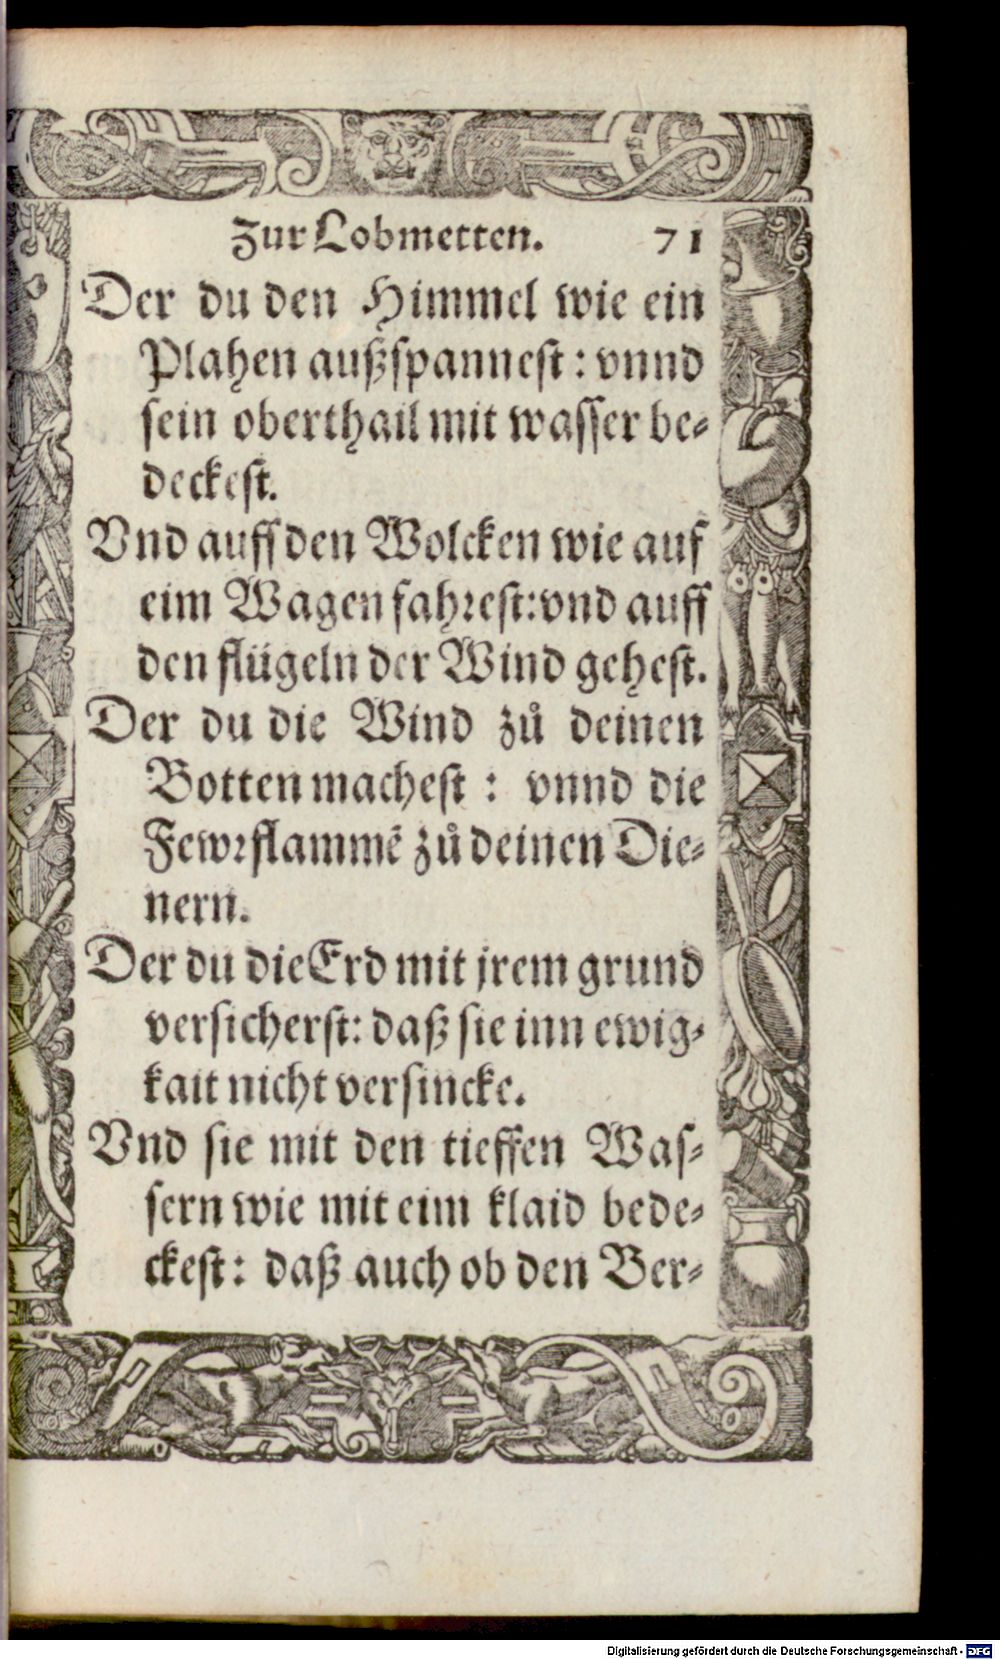 Zur Lobmetten. 71
Der du den Himmel wie ein
Plahen außspannest: vnnd
sein oberthail mit wasser be-
deckest.
Vnd auff den Wolcken wie auf
eim Wagen fahrest: vnd auff
den flügeln der Wind gehest.
Der du die Wind zů deinen
Botten machest: vnnd die
Fewrflammē zů deinen Die-
nern.
Der du die Erd mit jrem grund
versicherst: daß sie inn ewig-
kait nicht versincke.
Vnd sie mit den tieffen Was-
sern wie mit eim klaid bede-
ckest: daß auch ob den Ber-
Digitalisierung gefördert durch die Deutsche Forschungsgemeinschaft - DFG